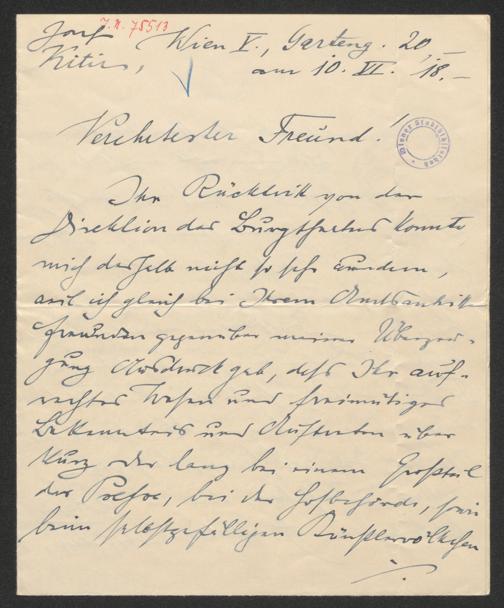 J.N. 78513
Josef
Kitir,
Wien V., Garteng. 20,
am 10. VI. 18.
Wiener Stadtbibliothek
Verehrtester Freund!
Ihr Rücktritt von der
Direktion des Burgtheaters konnte
mich deshalb nicht so sehr wundern,
weil ich gleich bei Ihrem Amtsantritte
Freunden gegenüber meiner Überzeu-
gung Ausdruck gab, daß Ihr auf-
rechtes Wesen und freimütiges
Bekenntnis und Auftreten über
kurz oder lang bei einem Großteil
der Presse, bei der Hofbehörde, sowie
beim selbstgefälligen Künstlervölkchen